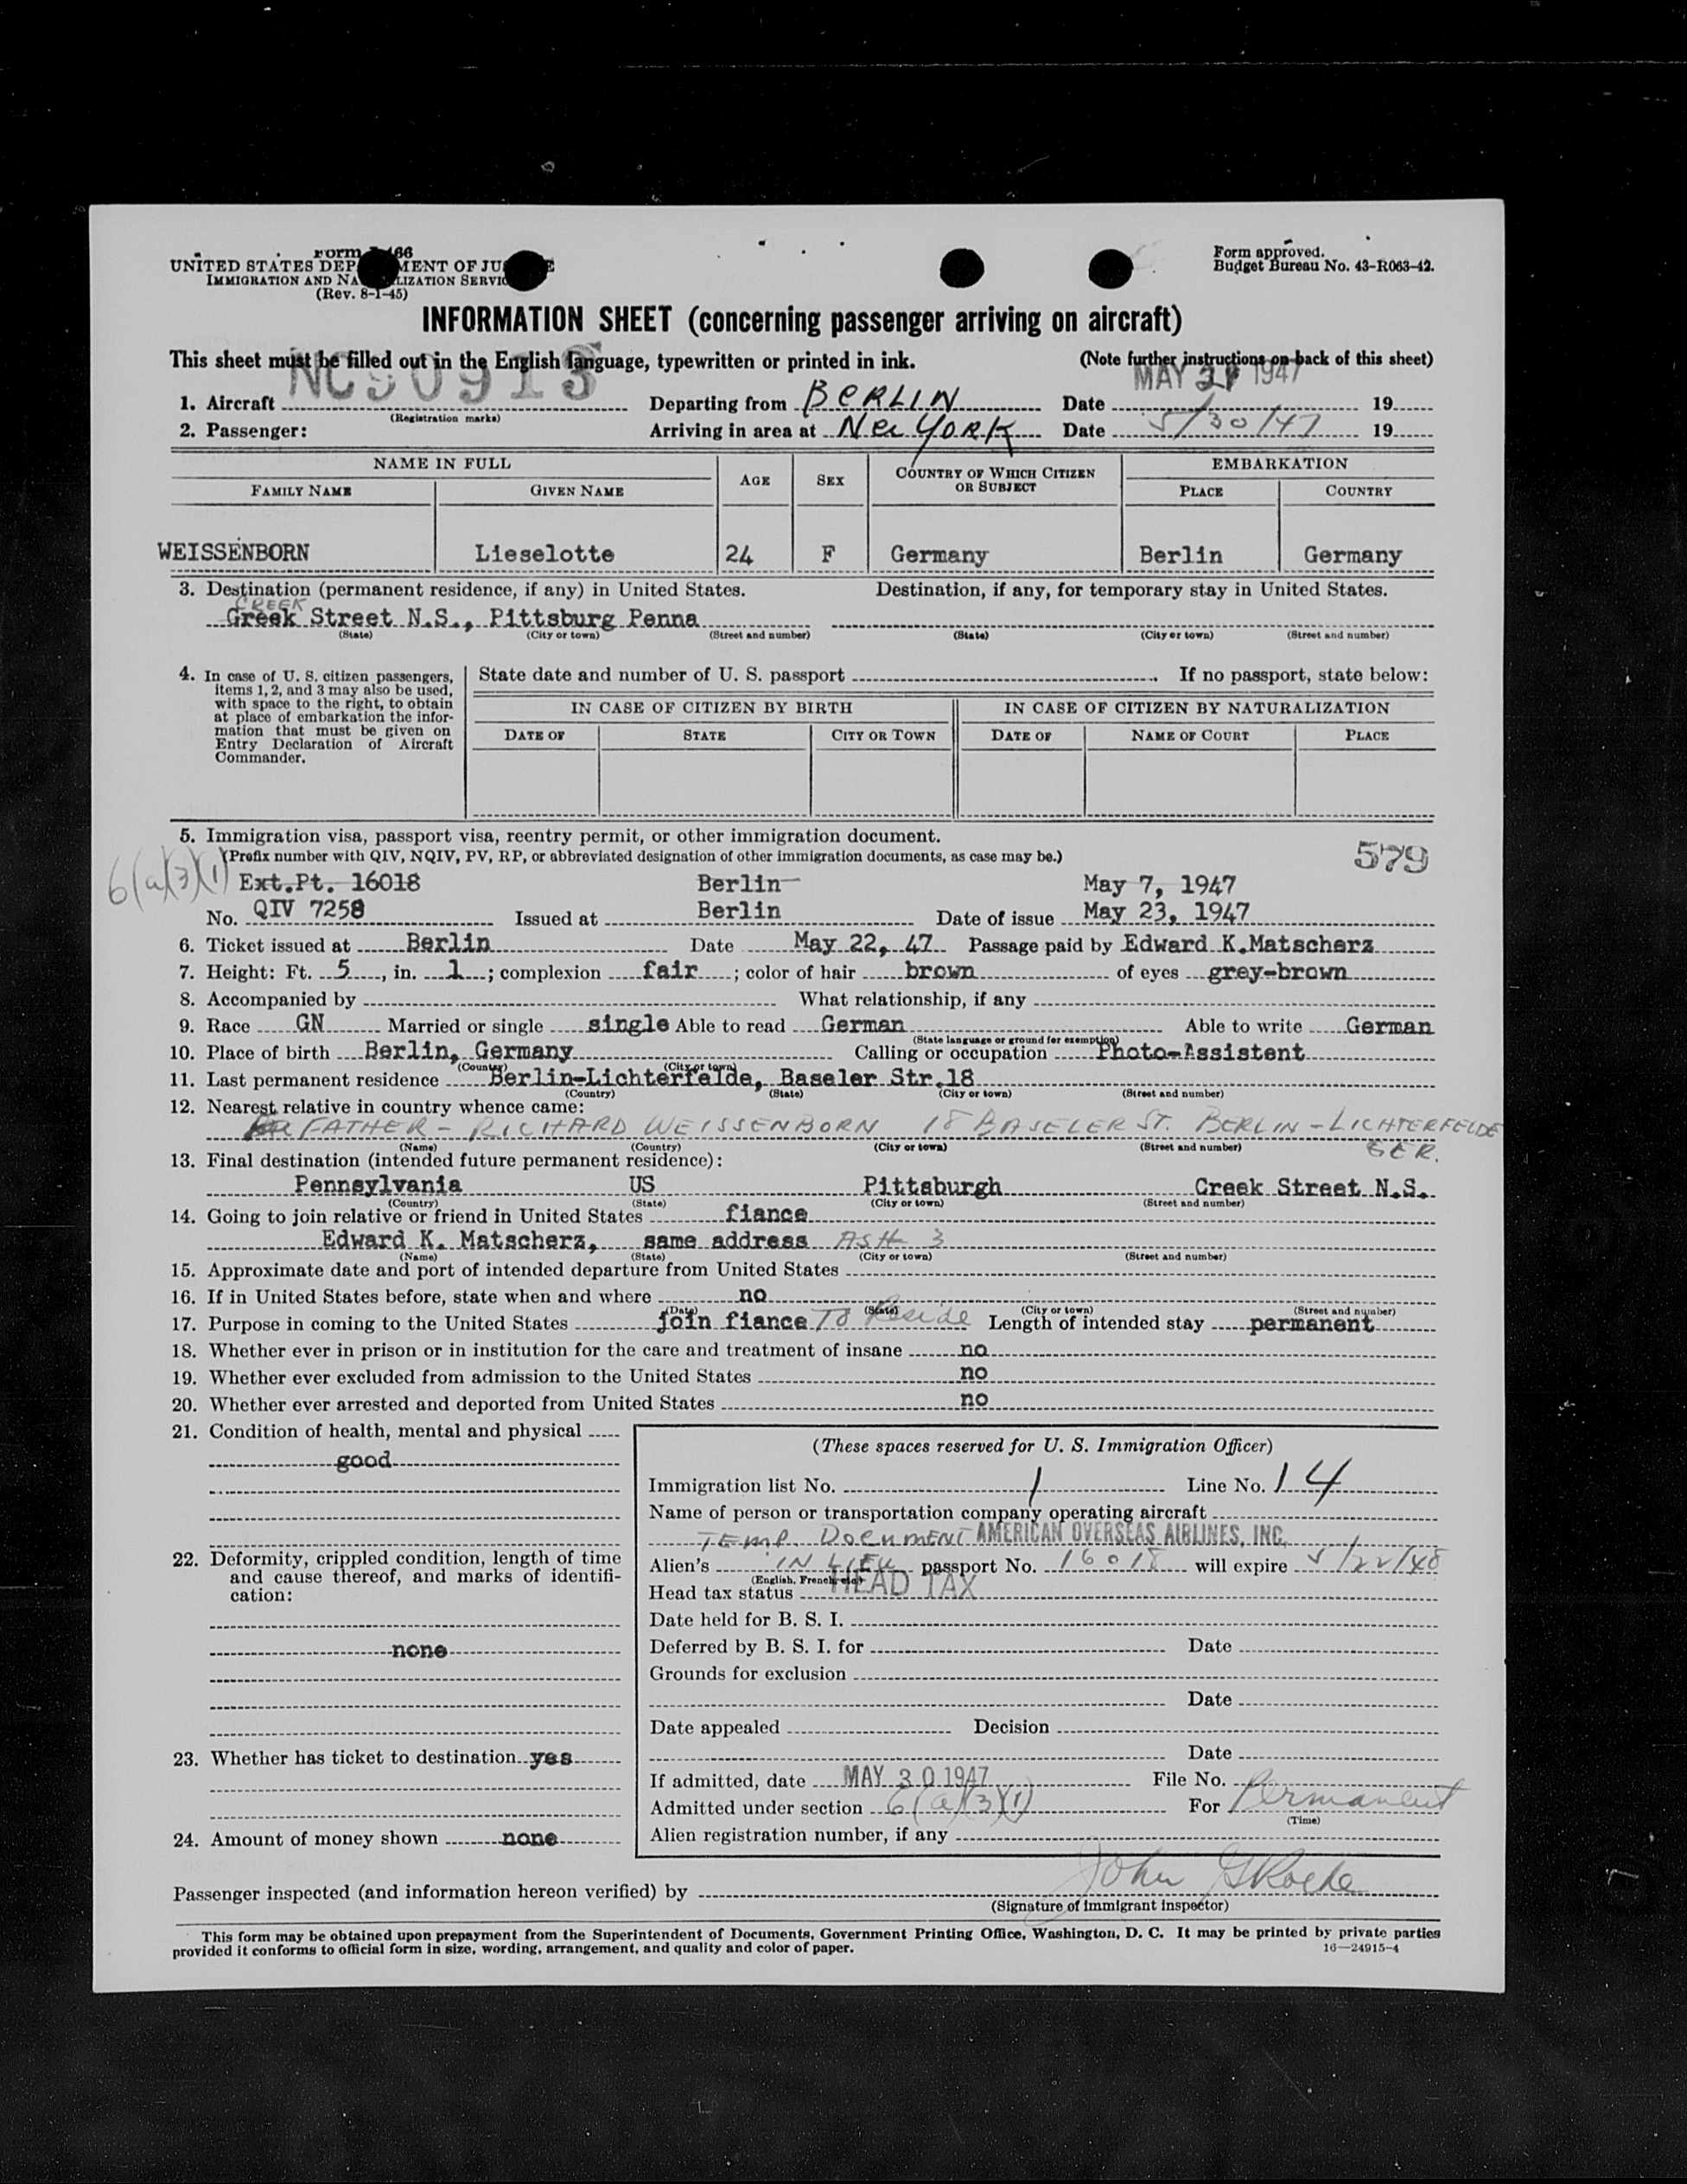 Form I-466
UNITED STATES DEPARTMENT OF JUSTICE
IMMIGRATION AND NATURALIZATION SERVICE
(Rev. 8-1-45)
Form approved.
Budget Bureau No. 43-R063-42.
INFORMATION SHEET (concerning passenger arriving on aircraft)
This sheet must be filled out in the English language, typewritten or printed in ink. (Note further instructions on back of this sheet)
NC90913 MAY 1947
1. Aircraft Departing from BERLIN Date 19
(Registration marks)
2. Passenger: Arriving in area at New YORK Date 5/30/47 19
NAME IN FULL AGE SEX COUNTRY OF WHICH CITIZEN OR SUBJECT EMBARKATION
FAMILY NAME GIVEN NAME PLACE COUNTRY
WEISSENBORN Lieselotte 24 F Germany Berlin Germany
3. Destination (permanent residence, if any) in United States. Destination, if any, for temporary stay in United States.
CREEK
Greek Street N.S., Pittsburg Penna
(State) (City or town) (Street and number) (State) (City or town) (Street and number)
4. In case of U. S. citizen passengers, items 1, 2, and 3 may also be used, with space to the right, to obtain at place of embarkation the information that must be given on Entry Declaration of Aircraft Commander.
State date and number of U. S. passport . If no passport, state below:
IN CASE OF CITIZEN BY BIRTH IN CASE OF CITIZEN BY NATURALIZATION
DATE OF STATE CITY OR TOWN DATE OF NAME OF COURT PLACE
5. Immigration visa, passport visa, reentry permit, or other immigration document.
(Prefix number with QIV, NQIV, PV, RP, or abbreviated designation of other immigration documents, as case may be.) 579
6(a)(3)(1) Ext.Pt. 16018 Berlin May 7, 1947
No. QIV 7258 Issued at Berlin Date of issue May 23, 1947
6. Ticket issued at Berlin Date May 22, 47 Passage paid by Edward K.Matscherz
7. Height: Ft. 5, in. 1; complexion fair; color of hair brown of eyes grey-brown
8. Accompanied by What relationship, if any
9. Race GN Married or single single Able to read German Able to write German
(State language or ground for exemption)
10. Place of birth Berlin, Germany Calling or occupation Photo-Assistent
(Country) (City or town)
11. Last permanent residence Berlin-Lichterfelde, Baseler Str.18
(Country) (State) (City or town) (Street and number)
12. Nearest relative in country whence came:
FATHER - RICHARD WEISSENBORN 18 BASELER ST. BERLIN - LICHTERFELDE
GER.
(Name) (Country) (City or town) (Street and number)
13. Final destination (intended future permanent residence):
Pennsylvania US Pittsburgh Creek Street N.S.
(Country) (State) (City or town) (Street and number)
14. Going to join relative or friend in United States fiance
Edward K. Matscherz, same address ASH 3
(Name) (State) (City or town) (Street and number)
15. Approximate date and port of intended departure from United States
16. If in United States before, state when and where no
(Date) (State) (City or town) (Street and number)
17. Purpose in coming to the United States join fiance To Reside Length of intended stay permanent
18. Whether ever in prison or in institution for the care and treatment of insane no
19. Whether ever excluded from admission to the United States no
20. Whether ever arrested and deported from United States no
21. Condition of health, mental and physical
good
22. Deformity, crippled condition, length of time and cause thereof, and marks of identification:
none
23. Whether has ticket to destination yes
24. Amount of money shown none
(These spaces reserved for U. S. Immigration Officer)
Immigration list No. 1 Line No. 14
Name of person or transportation company operating aircraft
TEMP. DOCUMENT AMERICAN OVERSEAS AIRLINES, INC.
Alien's IN LIEU passport No. 16018 will expire 5/22/48
(English, French, etc.)
Head tax status HEAD TAX
Date held for B. S. I.
Deferred by B. S. I. for Date
Grounds for exclusion
Date
Date appealed Decision
Date
If admitted, date MAY 30 1947 File No.
Admitted under section 6(a)(3)(1) For Permanent
(Time)
Alien registration number, if any
Passenger inspected (and information hereon verified) by John G Roche
(Signature of immigrant inspector)
This form may be obtained upon prepayment from the Superintendent of Documents, Government Printing Office, Washington, D. C. It may be printed by private parties
provided it conforms to official form in size, wording, arrangement, and quality and color of paper. 16—24915-4